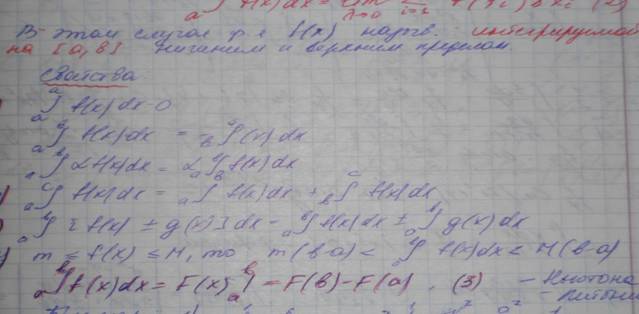 a∫ f(x)dx = lim λ→0 Σ i=1 f( i) xi (2)
В этом случае ф-я f(x) назыв. интегрируемой
на [a, b] нижним и верхним пределом.
Свойства
a∫a f(x)dx = 0
a∫b f(x)dx = -b∫a f(x)dx
a∫b αf(x)dx = α a∫b f(x)dx
a∫c f(x)dx = a∫b f(x)dx + b∫c f(x)dx
a∫b [f(x) ± g(x)]dx = a∫b f(x)dx ± a∫b g(x)dx
m ≤ f(x) ≤ M, то m(b-a) < a∫b f(x)dx < M(b-a)
a∫b f(x)dx = F(x) |a b = F(b) - F(a), (3) - Ньютона
- Лейбни